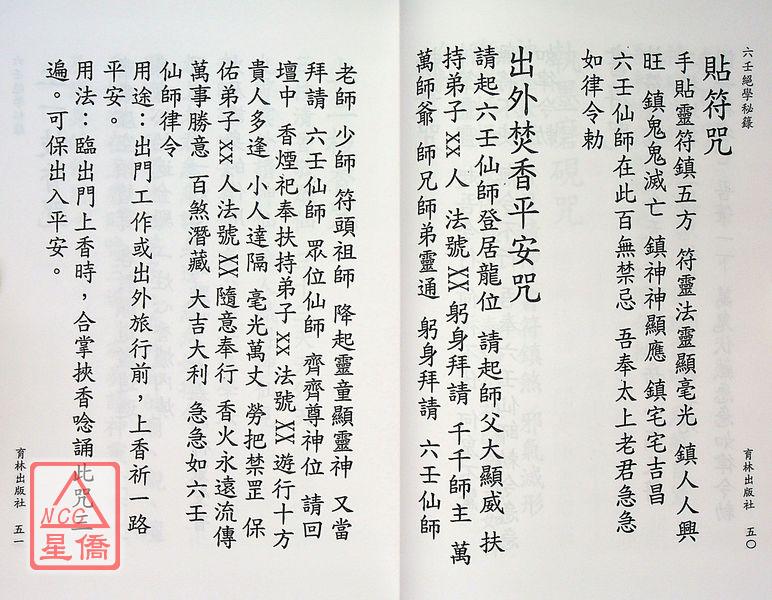 六壬絕學秘錄
貼符咒
手貼靈符鎮五方 符靈法靈顯毫光 鎮人人興
旺 鎮鬼鬼滅亡 鎮神神顯應 鎮宅宅吉昌
六壬仙師在此百無禁忌 吾奉太上老君急急
如律令勅
出外焚香平安咒
請起六壬仙師登居龍位 請起師父大顯威 扶
持弟子 XX 人 法號 XX 躬身拜請 千千師主 萬
萬師爺 師兄師弟靈通 躬身拜請 六壬仙師
育林出版社 五〇
六壬絕學秘錄
老師 少師 符頭祖師 降起靈童顯靈神 又當
拜請 六壬仙師 眾位仙師 齊齊尊神位 請回
壇中 香煙祀奉扶持弟子 XX 法號 XX 遊行十方
貴人多逢 小人達隔 毫光萬丈 勞把禁罡 保
佑弟子 XX 人法號 XX 隨意奉行 香火永遠流傳
萬事勝意 百煞潛藏 大吉大利 急急如六壬
仙師律令
用途：出門工作或出外旅行前，上香祈一路
平安。
用法：臨出門上香時，合掌挾香唸誦此咒三
遍。可保出入平安。
育林出版社 五一
NCC
星僑